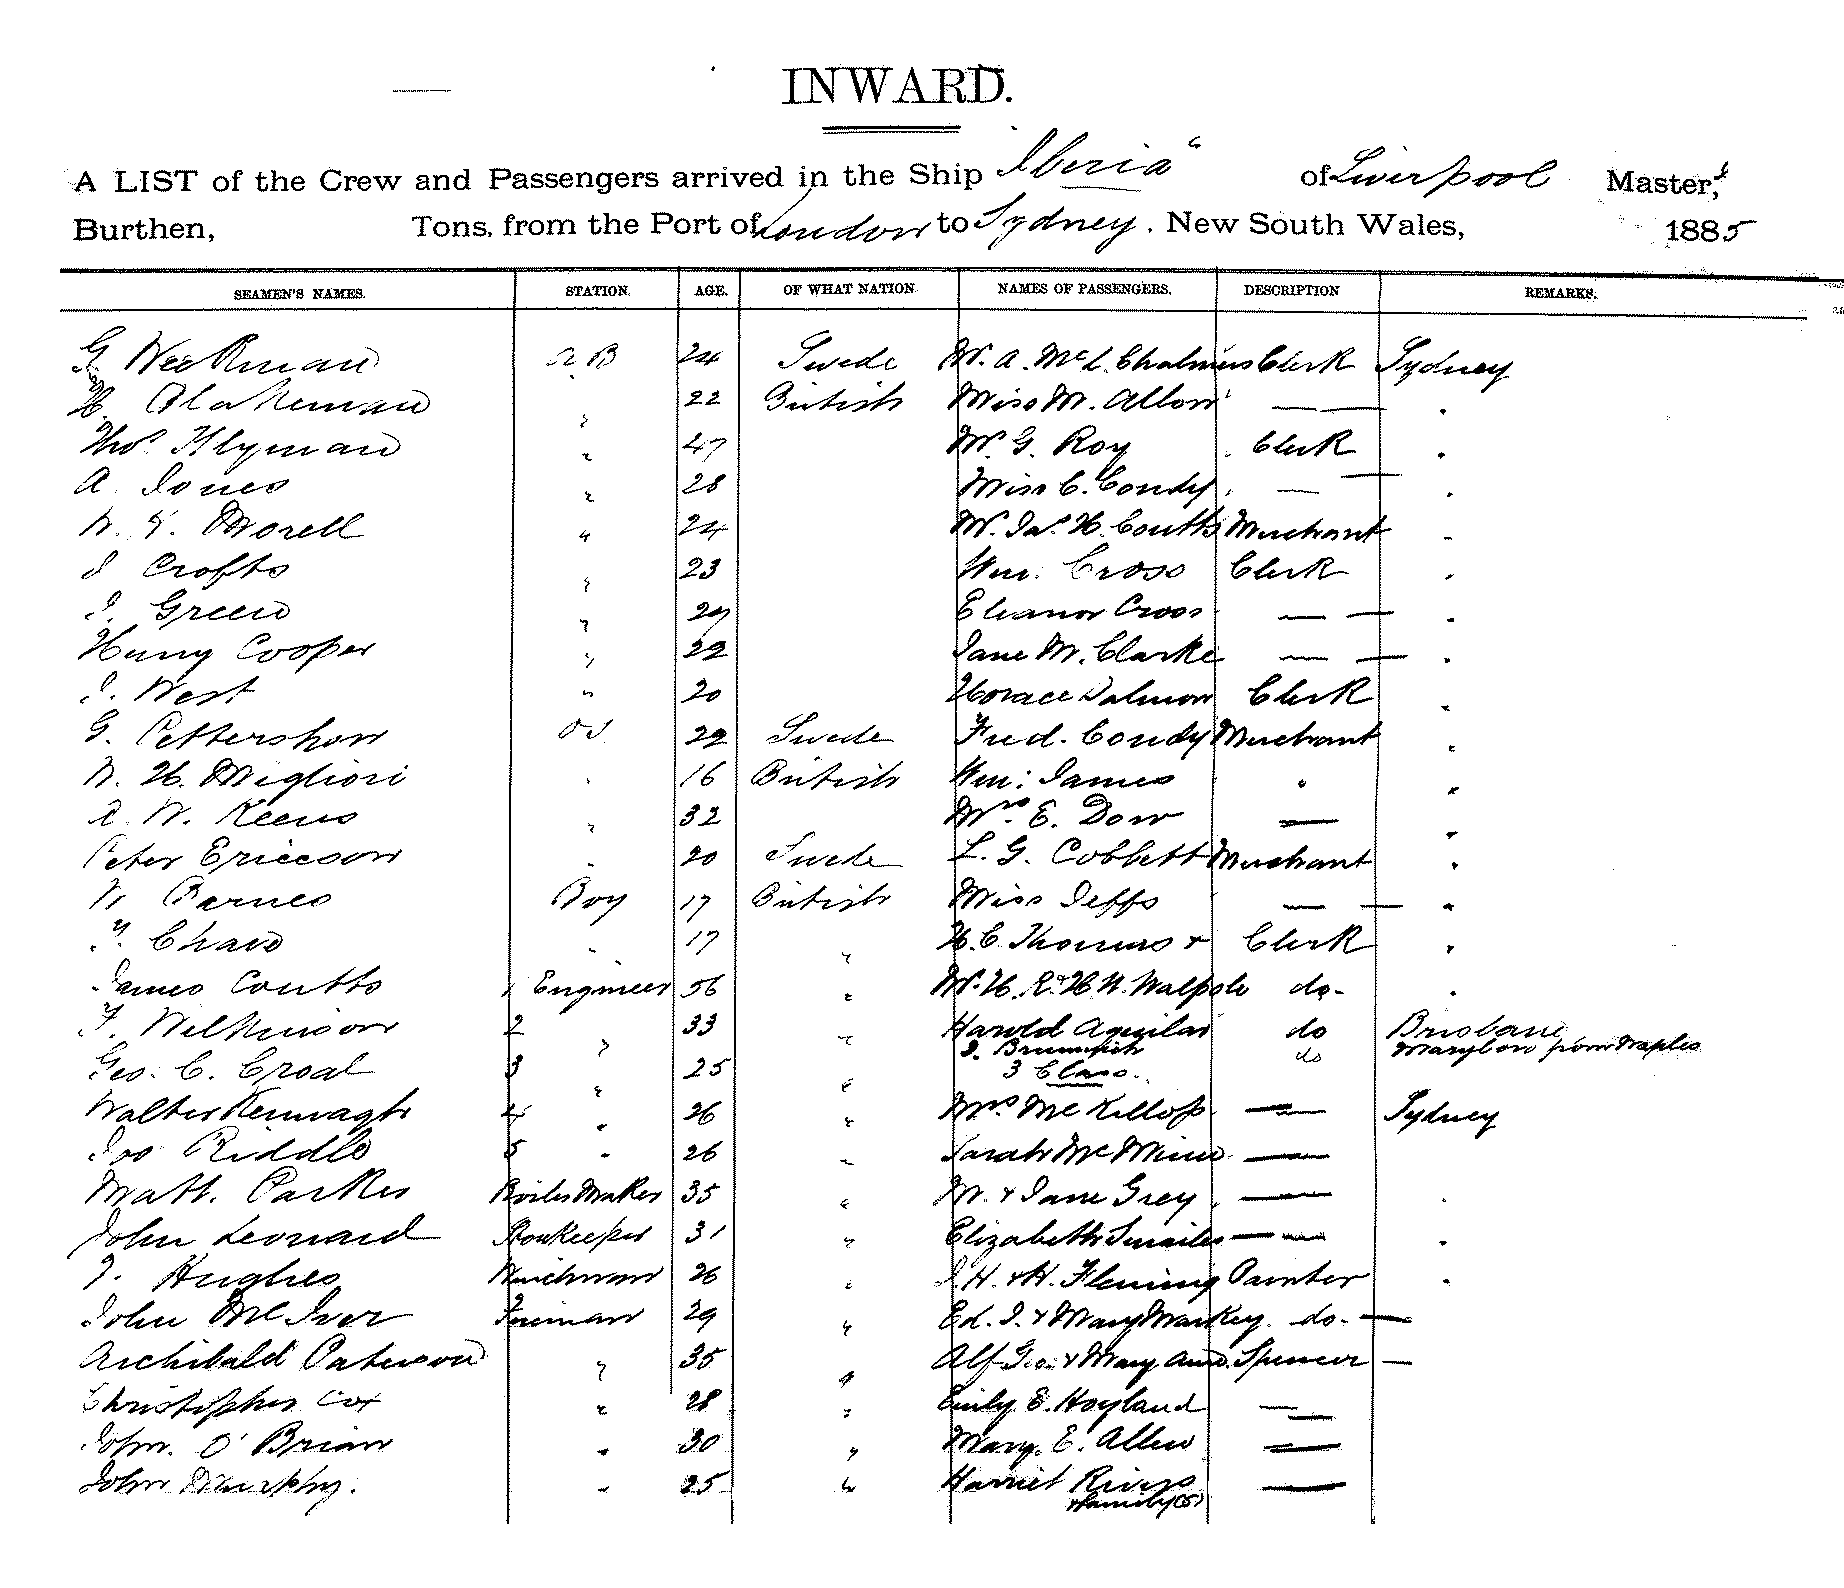 INWARD.
A LIST of the Crew and Passengers arrived in the Ship "Iberia" of Liverpool Master,
Burthen, Tons, from the Port of London to Sydney. New South Wales, 1885
SEAMEN'S NAMES. STATION. AGE. OF WHAT NATION NAMES OF PASSENGERS. DESCRIPTION REMARKS.
G. Weekman A B 24 Swede W. A. McL. Chalmers Clerk Sydney
H. Blakeman " 22 British Miss M. Allow — "
Thos. Hlyman " 47 Mr. G. Roy Clerk "
A. Jones " 28 Miss C. Condy — "
W. Y. Morell " 24 W. Jas. H. Coutts Merchant "
J Crofts " 23 Wm. Cross Clerk "
J. Green " 29 Eleanor Cross — "
Henry Cooper " 22 Jane M. Clarke — "
J. West " 20 Horace Salmon Clerk "
G. Pettershon OS 22 Swede Fred. Condy Merchant "
W. H. Migliori " 16 British Wm: James " "
R. W. Keens " 32 Mrs. E. Dow — "
Peter Ericcson " 20 Swede L. G. Cobbett Merchant "
W Barnes Boy 17 British Miss Jeffs — "
F. Chave " 17 " H. C. Thomas + Clerk "
James Coutts 1 Engineer 56 " W. H. R. & H. W. Walpole do- "
F. Wilkinson 2 " 33 " Harold Aguilar do Brisbane
J. do from Naples
Geo. C. Croal 3 " 25 " 3 Class.
Walter Kenwagh 4 " 26 " Mrs McKillop — Sydney
Jos Riddle 5 " 26 " Sarah —
Matt. Parkes Boiler Maker 35 " M. & Jane Grey — "
John Leonard Storekeeper 31 " Elizabeth Smailes — "
J. Hughes Winchman 26 " J. H. & H. Fleming Painter "
John McIver Fireman 29 " Ed. J. & Mary Markey. do- —
Archibald Paterson " 35 " Alf Geo. & Mary Ann. Spencer —
Christopher Cox " 28 " Emily E. Hoyland —
John. O'Brian " 30 " Mary. E. Allen —
John Murphy. " 25 " Harriet Rivers —
& family (5)